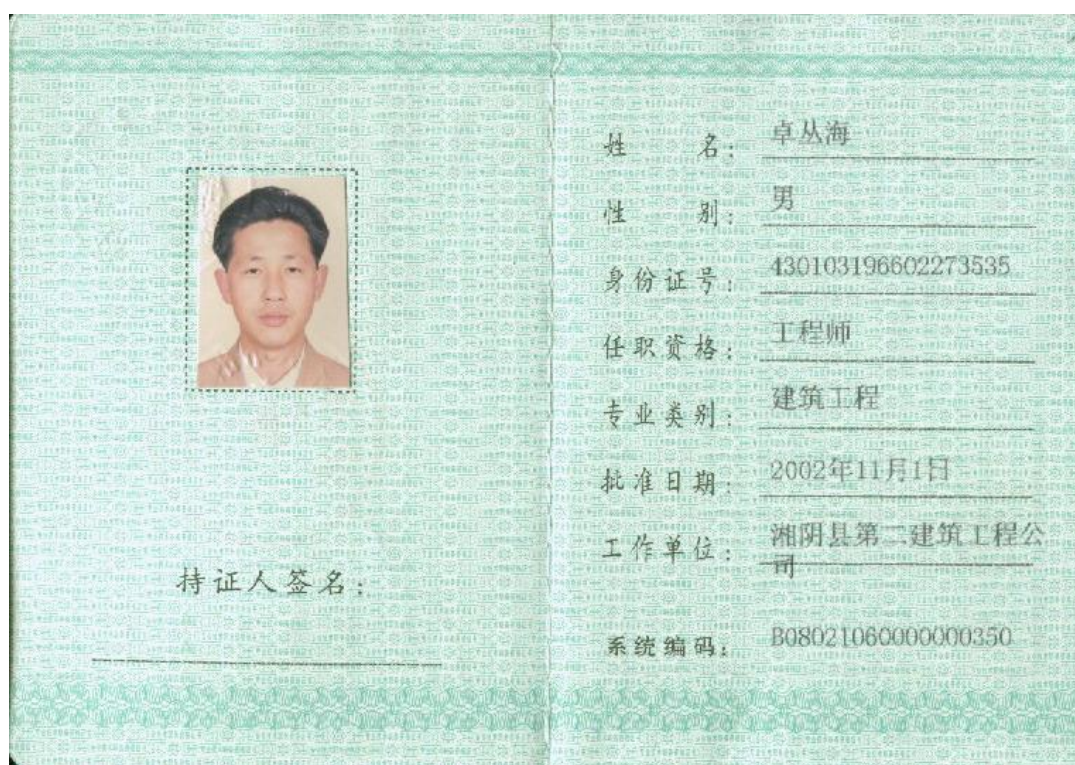 姓 名: 卓丛海
性 别: 男
身份证号: 430103196602273535
任职资格: 工程师
专业类别: 建筑工程
批准日期: 2002年11月1日
工作单位: 湘阴县第二建筑工程公
司
系统编码: B08021060000000350
持证人签名: